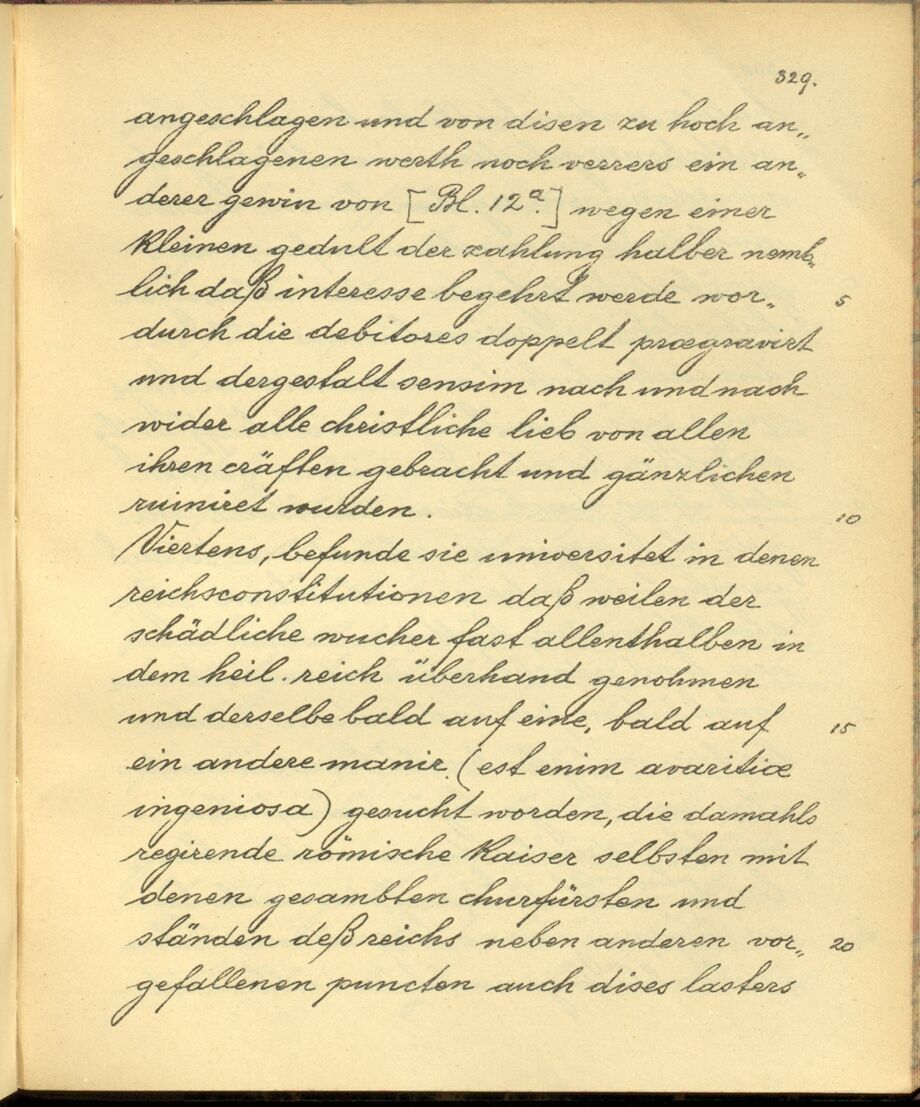 329.
angeschlagen und von disen zu hoch an„
geschlagenen werth noch verrers ein an„
derer gewin von [Bl. 12a.] wegen einer
kleinen gedult der zahlung halber nemb„
lich daß interesse begehrt werde wor„ 5
durch die debitores doppelt prægravirt
und dergestalt sensim nach und nach
wider alle christliche lieb von allen
ihren cräften gebracht und gänzlichen
ruiniret wurden. 10
Viertens, befunde sie universitet in denen
reichsconstitutionen daß weilen der
schädliche wucher fast allenthalben in
dem heil. reich überhand genohmen
und derselbe bald auf eine, bald auf 15
ein andere manir (est enim avaritiæ
ingeniosa) gesucht worden, die damahls
regirende römische Kaiser selbsten mit
denen gesambten churfürsten und
ständen deß reichs neben anderen vor„ 20
gefallenen puncten auch dises lasters